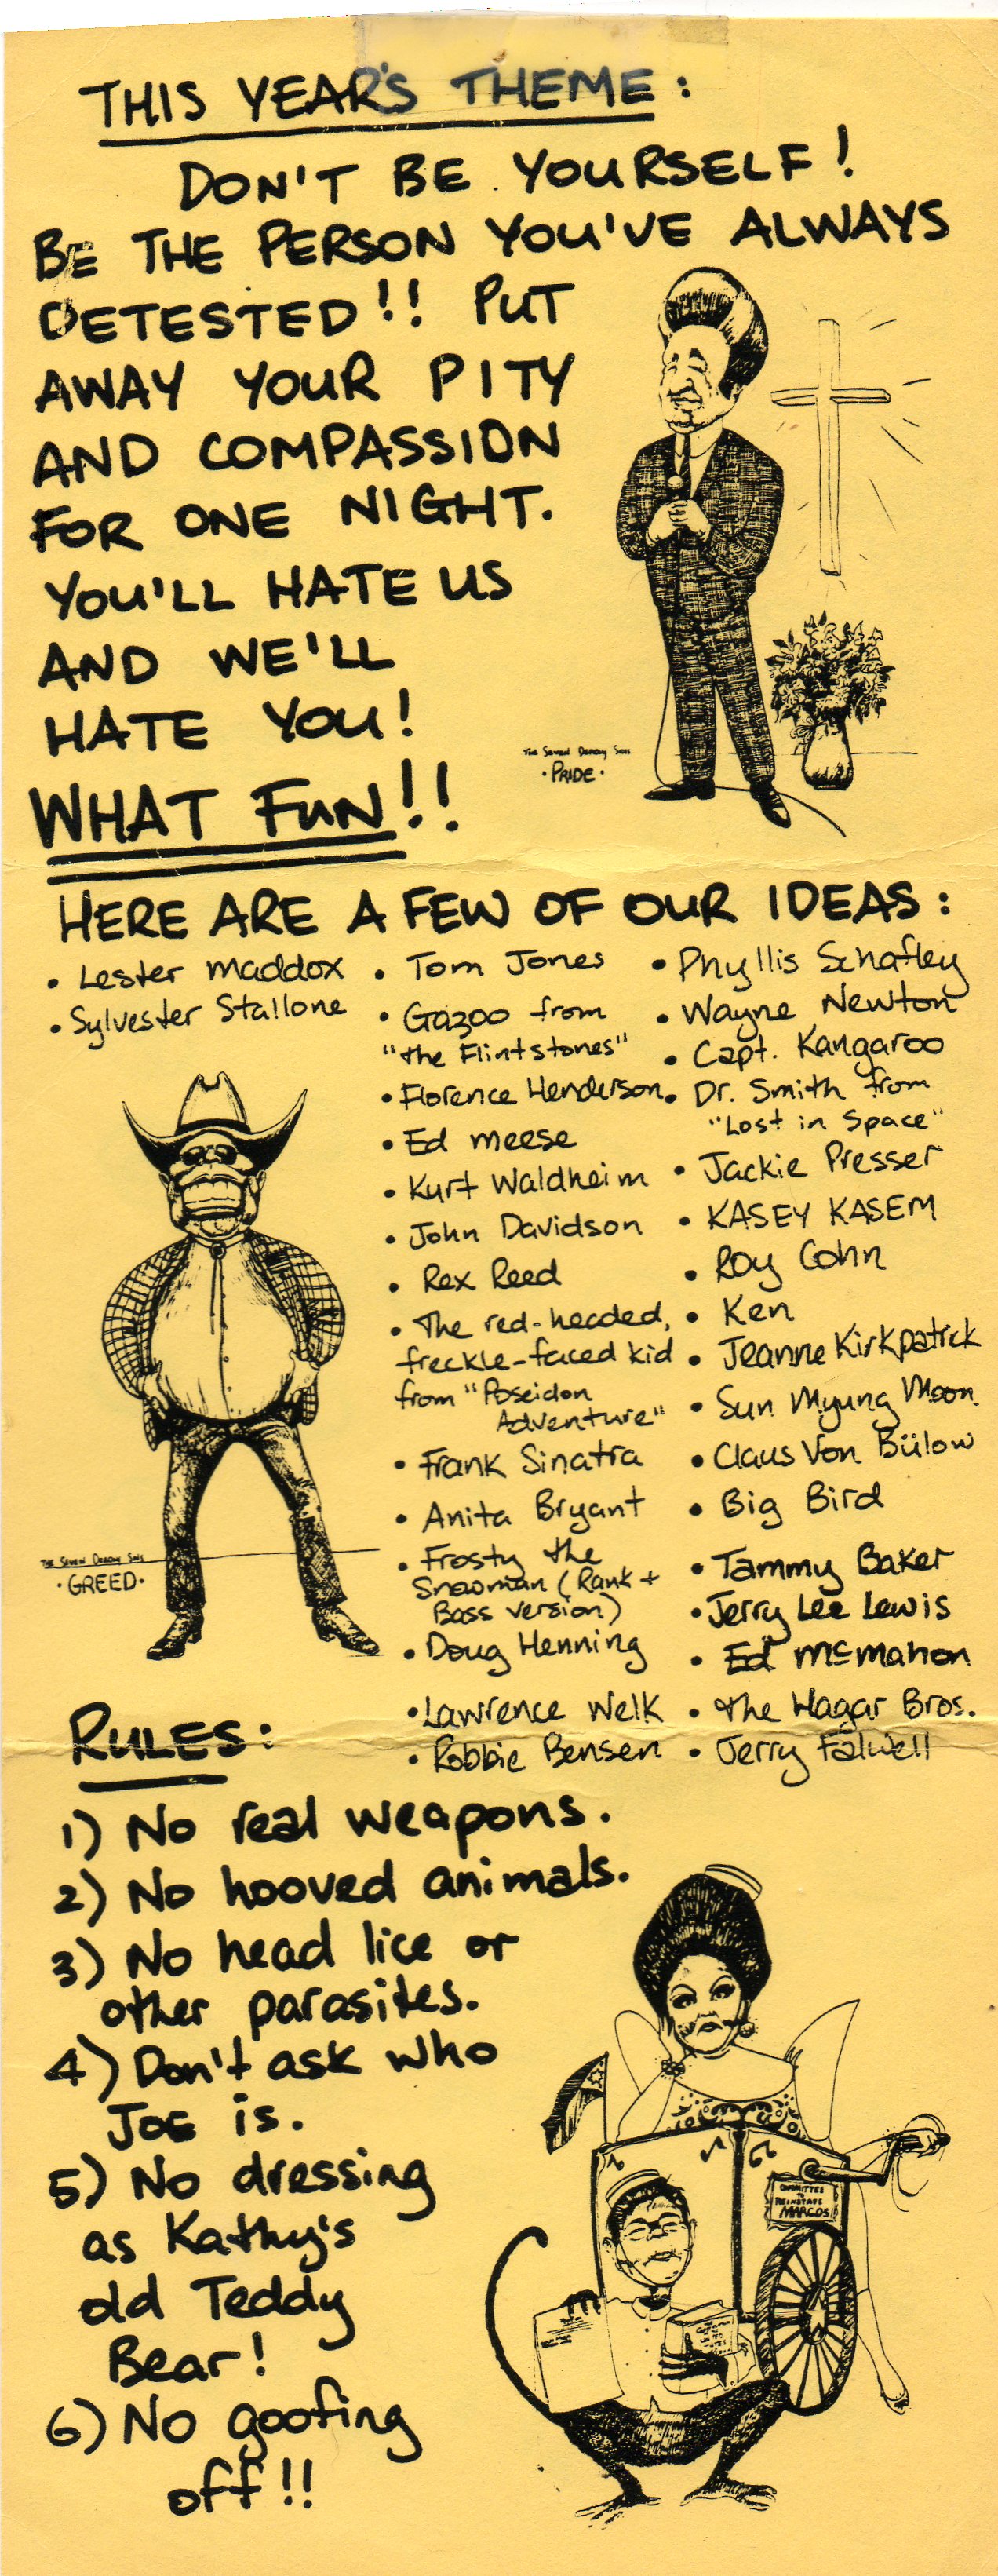 THIS YEAR'S THEME:
DON'T BE YOURSELF!
BE THE PERSON YOU'VE ALWAYS
DETESTED!! PUT
AWAY YOUR PITY
AND COMPASSION
FOR ONE NIGHT.
YOU'LL HATE US
AND WE'LL
HATE YOU!
THE SEVEN DEADLY SINS
·PRIDE·
WHAT FUN!!
HERE ARE A FEW OF OUR IDEAS:
• Lester Maddox
• Sylvester Stallone
• Tom Jones
• Gazoo from
"the Flintstones"
• Florence Henderson
• Ed Meese
• Kurt Waldheim
• John Davidson
• Rex Reed
• The red-headed,
freckle-faced kid
from "Poseidon
Adventure"
• Frank Sinatra
• Anita Bryant
• Frosty the
Snowman (Rank +
Bass version)
• Doug Henning
• Lawrence Welk
• Robbie Bensen
• Phyllis Schafley
• Wayne Newton
• Capt. Kangaroo
• Dr. Smith from
"Lost in Space"
• Jackie Presser
• KASEY KASEM
• Roy Cohn
• Ken
• Jeanne Kirkpatrick
• Sun Myung Moon
• Claus Von Bülow
• Big Bird
• Tammy Baker
• Jerry Lee Lewis
• Ed McMahon
• the Hagar Bros.
• Jerry Falwell
THE SEVEN DEADLY SINS
·GREED·
RULES:
1) No real weapons.
2) No hooved animals.
3) No head lice or
other parasites.
4) Don't ask who
JOE is.
5) No dressing
as Kathy's
old Teddy
Bear!
6) No goofing
off!!
COMMITTEE
TO
REINSTATE
MARCOS